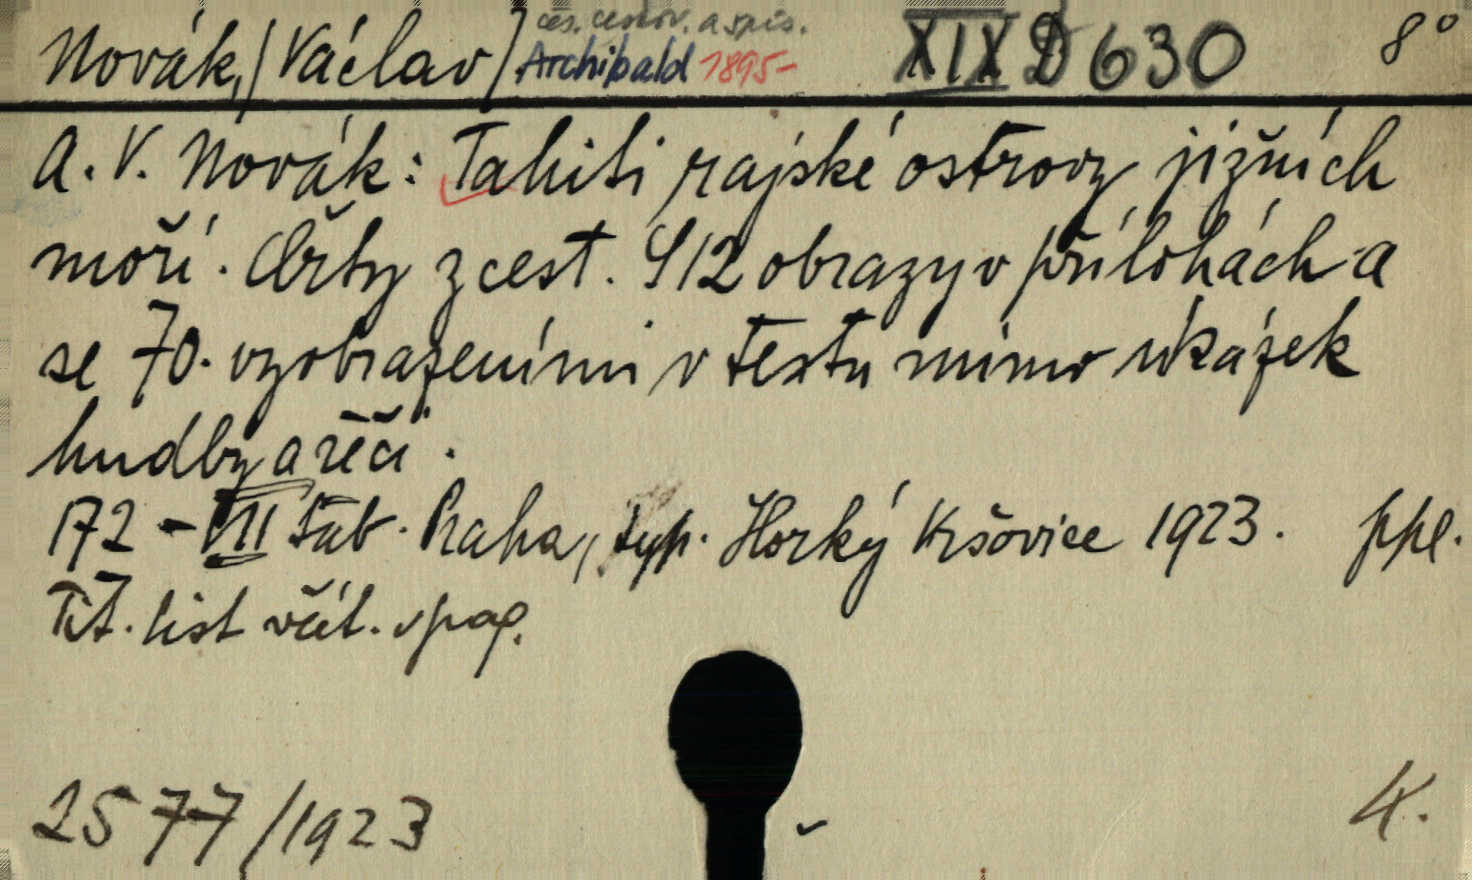 Novák, /Václav/ čes. cestov. a spis. Archibald 1895- XIX D 630 8°
A. V. Novák: Tahiti rajské ostrovy jižních
moří. Črty z cest. S 12 obrazy v přílohách a
se 70. vyobrazeními v textu mimo ukázek
hudby a řeči.
172 - VII tab. Praha, typ. Horký Kršovice 1923. ppl.
Tit. list včít. v pag.
2577/1923 4.